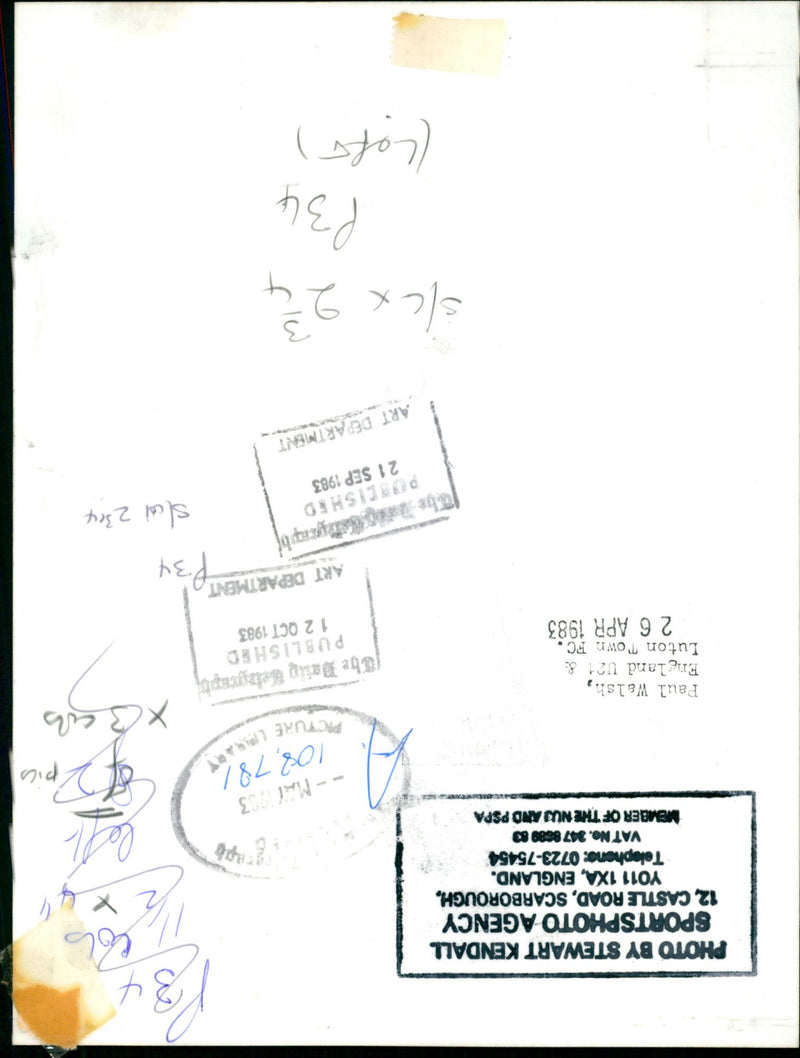 PHOTO BY STEWART KENDALL
SPORTSPHOTO AGENCY
12, CASTLE ROAD, SCARBOROUGH,
YO11 1XA, ENGLAND.
Telephone: 0723-75454
VAT No. 347 8689 83
MEMBER OF THE NUJ AND PSPA
Paul Walsh,
England U21 &
Luton Town FC.
26 APR 1983
P34
1 1/2
left
2
pics
x 3 cols
Telegraph
- MAY 1983
A. 108,781
PICTURE LIBRARY
The Daily Telegraph
PUBLISHED
12 OCT 1983
ART DEPARTMENT
P34
The Daily Telegraph
PUBLISHED
21 SEP 1983
ART DEPARTMENT
S/C x 2 3/4
P34